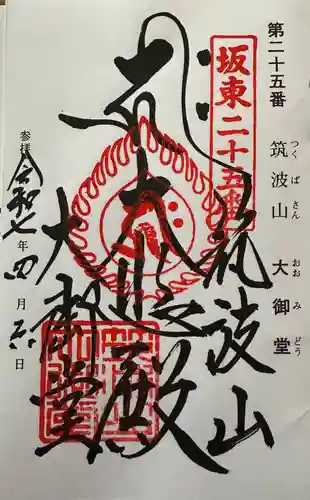 第二十五番 筑波山 大御堂
つくばさん おおみどう
坂東二十五番
筑波山
大悲殿
大御堂
参拝 令和七年四月 日